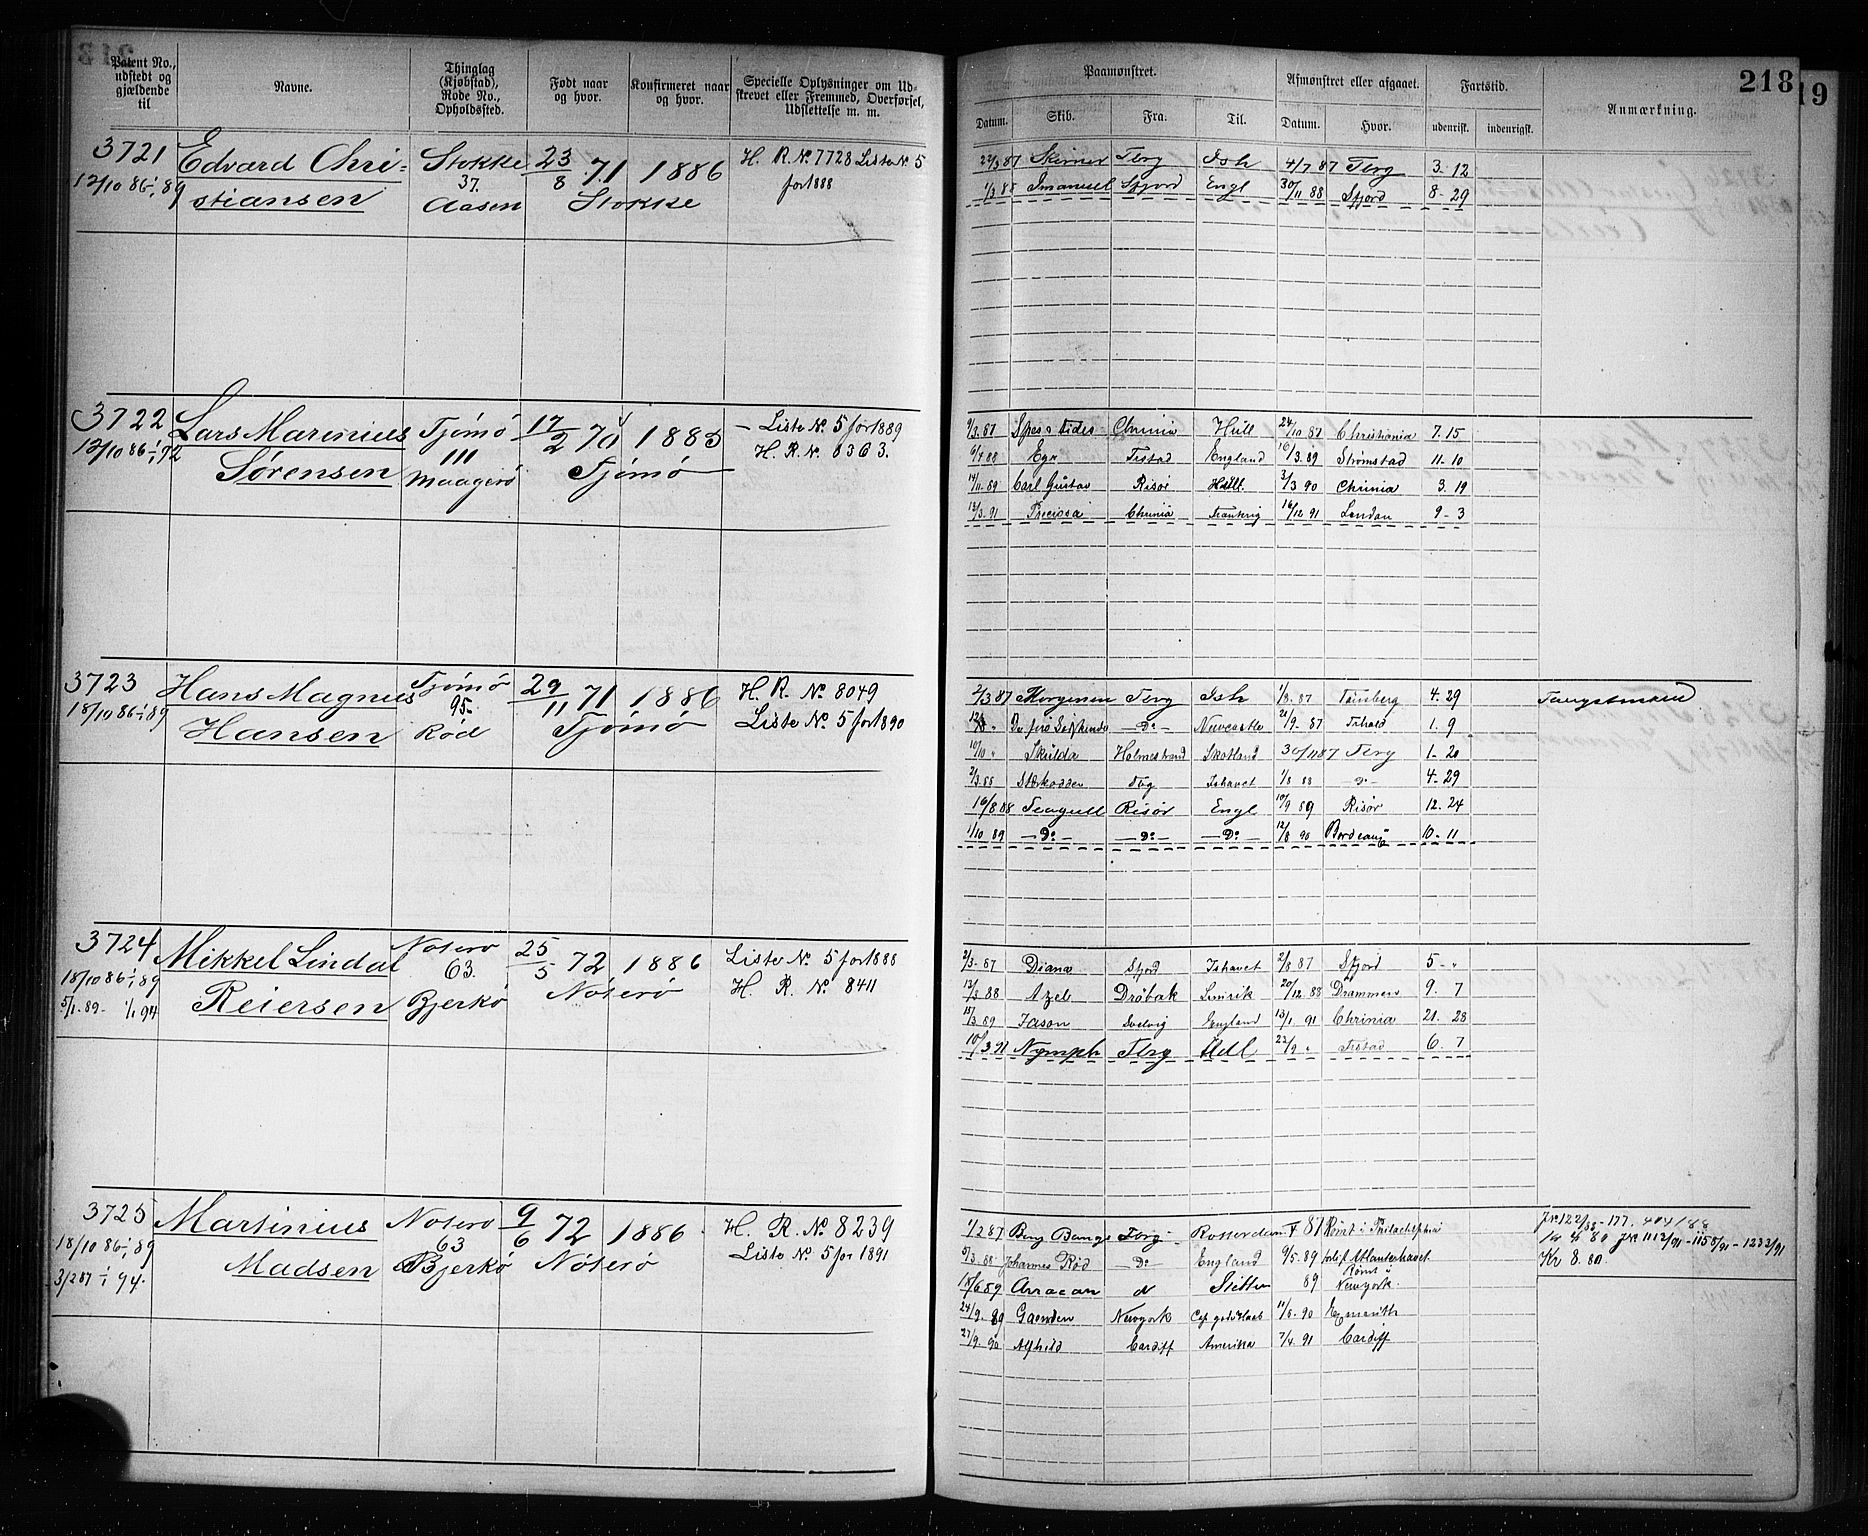 Patent No., udstedt og gjældende til | Navne. | Thinglag (Kjøbstad), Rode No., Opholdssted. | Født naar og hvor. | Konfirmeret naar og hvor. | Specielle Oplysninger om Udskrevet eller Fremmed, Overførsel, Udslettelse m. m.
3721 Edvard Chri- Stokke 23/8 71 1886 H. R. No 7728 Liste No 5
12/10 86 - 1/1 89 stiansen 37. Aasen Stokke for 1888
3722 Lars Marinius Tjømø 17/2 70 1885 Liste No. 5 for 1889
12/10 86 - 1/1 92 Sørensen 111 Maagerø Tjømø H. R. No. 8363.
3723 Hans Magnus Tjømø 29/11 71 1886 H. R. No. 8049
18/10 86 - 1/1 89 Hansen 95. Rød Tjømø Liste No. 5 for 1890
3724 Mikkel Lindal Noterø 25/5 72 1886 Liste No. 5 for 1888
18/10 86 - 1/1 89 Reiersen 63. Bjerkø Noterø H. R. No. 8411
5/1 89 - 1/1 94
3725 Martinius Noterø 9/6 72 1886 H. R. No. 8239
18/10 86 - 1/1 89 Madsen 63 Bjerkø Nøterø Liste No. 5 for 1891
3/2 87 - 1/1 94.
218
19
Paamønstret. | Afmønstret eller afgaaet. | Fartstid. | Anmærkning.
Datum. | Skib. | Fra: | Til. | Datum. | Hvor. | udenrigs. | indenrigs.
22/3 87 Skirner Tbrg Ish 4/7 87 Tbrg 3. 12
1/3 88 Imanuel Sfjord Engl 30/11 88 Sfjord 8 - 29
9/3 87 Spes & Fides Chrinia Hull 24/10 87 Christiania 7. 15
6/7 88 Ege Frstad England 16/3 89 Strømstad 11 - 10
14/11 89 Carl Gustav Risør Hull. 3/3 90 Chrinia 3. 19
13/3 91 Preciosa Chrinia Frankrig 16/12 91 London 9 - 3
2/3 87 Morgenen Tbrg Ish 1/8 87 Tønsberg 4. 29
Do Newcastle 21/9 87 Frhald 1. 9
10/10 " Skulda Holmestrand Skotland 30/11 87 Tbrg 1 - 20
2/3 88 Stærkodder Tbg Ishavet 1/8 88 Do 4 - 29
16/8 88 Seagull Risør Engl 10/9 89 Risør 12. 24
1/10 89 Do Do Do 12/8 90 Bordeaux 10 - 11
2/3 87 Diana Sfjord Ishavet 2/8 87 Sfjord 5 - "
13/3 88 Azel Drøbak Limrik 20/12 88 Drammen 9. 7
15/3 89 Jason Svelvig England 13/1 91 Chrinia 21. 28
10/3 91 Nymph Tbrg Hull 22/9 " Frstad 6. 7
1/2 87 Tbrg Rotterdam 87 Rømt i Philadelphia
9/3 88 Johannes Rød Do England 9/5 89 Atlanterhavet
18/6 89 Arracan Stettin 89 Rømt i Newyork.
24/9 89 Newyork 11/8 90
27/9 90 Alfhild Cardiff Amerika 7/4 91 Cardiff